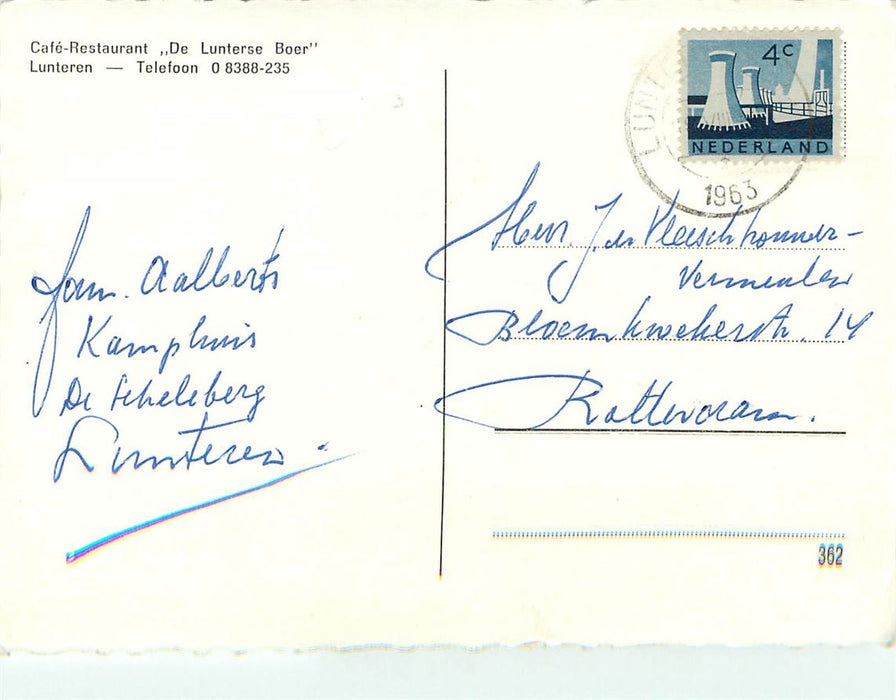 Café-Restaurant ,,De Lunterse Boer"
Lunteren — Telefoon 0 8388-235
4c
NEDERLAND
LUNT
1963
Fam. Aalberts
Kamphuis
De Scheleberg
Lunteren.
J. Vleeschhouwer-
Vermeulen
Bloemkwekerstr. 14
Rotterdam.
362